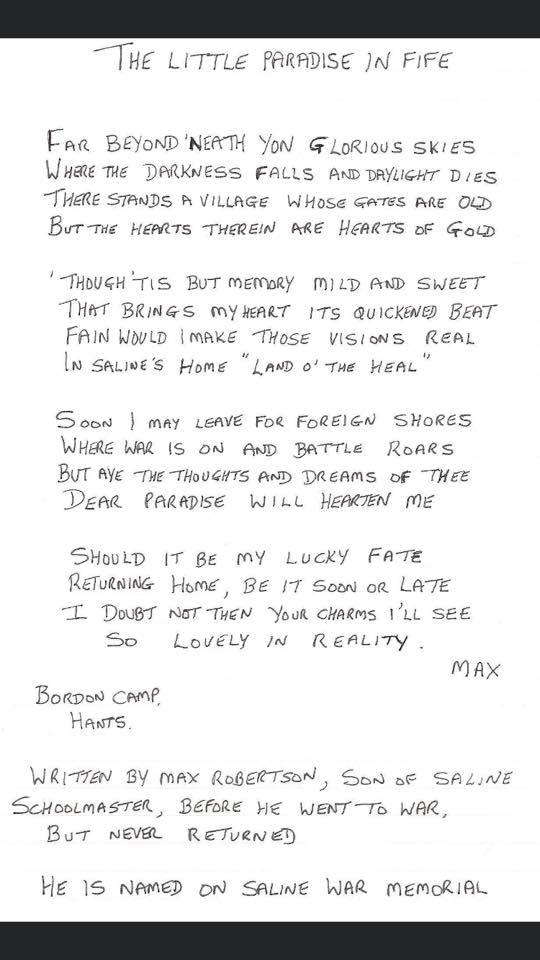 THE LITTLE PARADISE IN FIFE
FAR BEYOND 'NEATH YON GLORIOUS SKIES
WHERE THE DARKNESS FALLS AND DAYLIGHT DIES
THERE STANDS A VILLAGE WHOSE GATES ARE OLD
BUT THE HEARTS THEREIN ARE HEARTS OF GOLD
'THOUGH 'TIS BUT MEMORY MILD AND SWEET
THAT BRINGS MY HEART ITS QUICKENED BEAT
FAIN WOULD I MAKE THOSE VISIONS REAL
IN SALINE'S HOME "LAND O' THE HEAL"
SOON I MAY LEAVE FOR FOREIGN SHORES
WHERE WAR IS ON AND BATTLE ROARS
BUT AYE THE THOUGHTS AND DREAMS OF THEE
DEAR PARADISE WILL HEARTEN ME
SHOULD IT BE MY LUCKY FATE
RETURNING HOME, BE IT SOON OR LATE
I DOUBT NOT THEN YOUR CHARMS I'LL SEE
SO LOVELY IN REALITY.
MAX
BORDON CAMP,
HANTS.
WRITTEN BY MAX ROBERTSON, SON OF SALINE
SCHOOLMASTER, BEFORE HE WENT TO WAR,
BUT NEVER RETURNED
HE IS NAMED ON SALINE WAR MEMORIAL